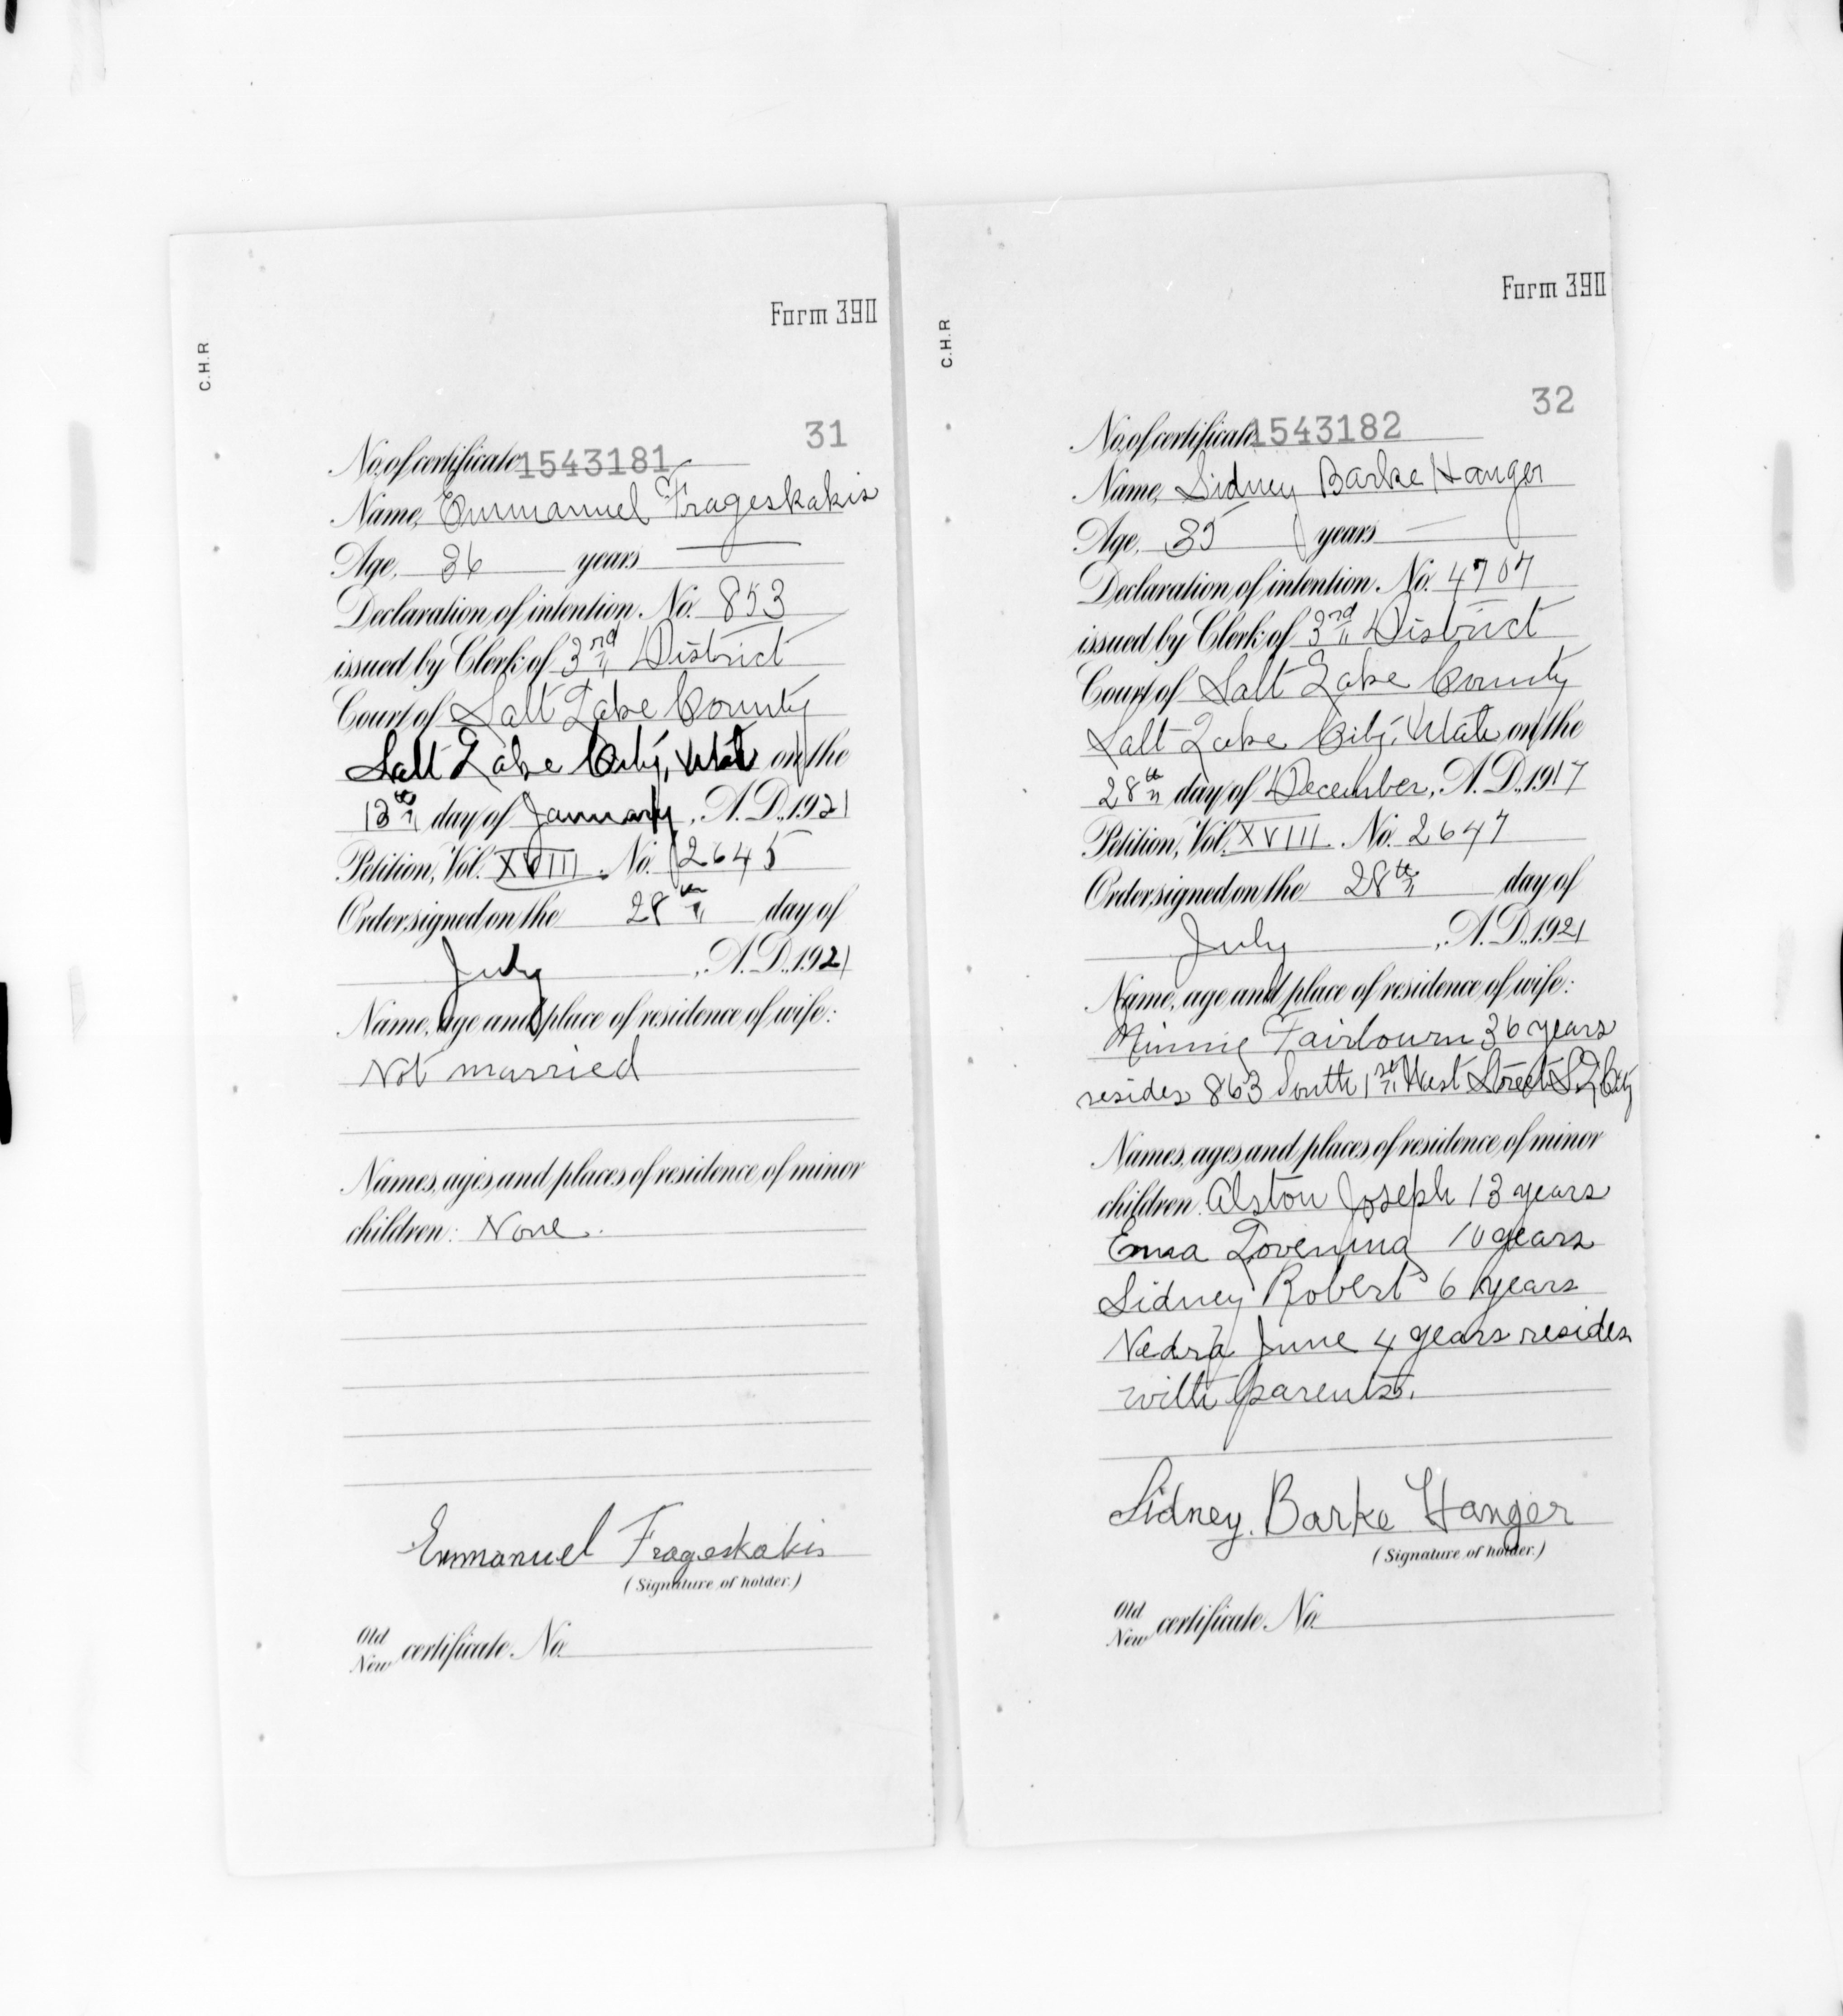 Form 390
C.H.R
31
No. of certificate 1543181
Name, Emmanuel Frageskakis
Age, 36 years
Declaration of intention, No. 853
issued by Clerk of 3rd " District
Court of Salt Lake County
Salt Lake City, Utah on the
13th " day of January, A.D., 1921
Petition, Vol. XVIII. No. 2645
Order signed on the 28th " day of
July, A.D., 1921
Name, age and place of residence of wife:
Not married
Names, ages and places of residence of minor
children: None.
Emmanuel Frageskakis
(Signature of holder.)
Old
New certificate No.
Form 390
C.H.R
32
No. of certificate 1543182
Name, Sidney Barke Hanger
Age, 35 years
Declaration of intention, No. 4707
issued by Clerk of 3rd " District
Court of Salt Lake County
Salt Lake City, Utah on the
28th " day of December, A.D., 1917
Petition, Vol. XVIII. No. 2647
Order signed on the 28th " day of
July, A.D., 1921
Name, age and place of residence of wife:
Minnie Fairbourn 36 years
resides 863 South 1st " West Street S. L. City
Names, ages and places of residence of minor
children Alston Joseph 13 years
10 years
Sidney Robert 6 years
Nedra June 4 years resides
with parents.
Sidney Barke Hanger
(Signature of holder.)
Old
New certificate No.